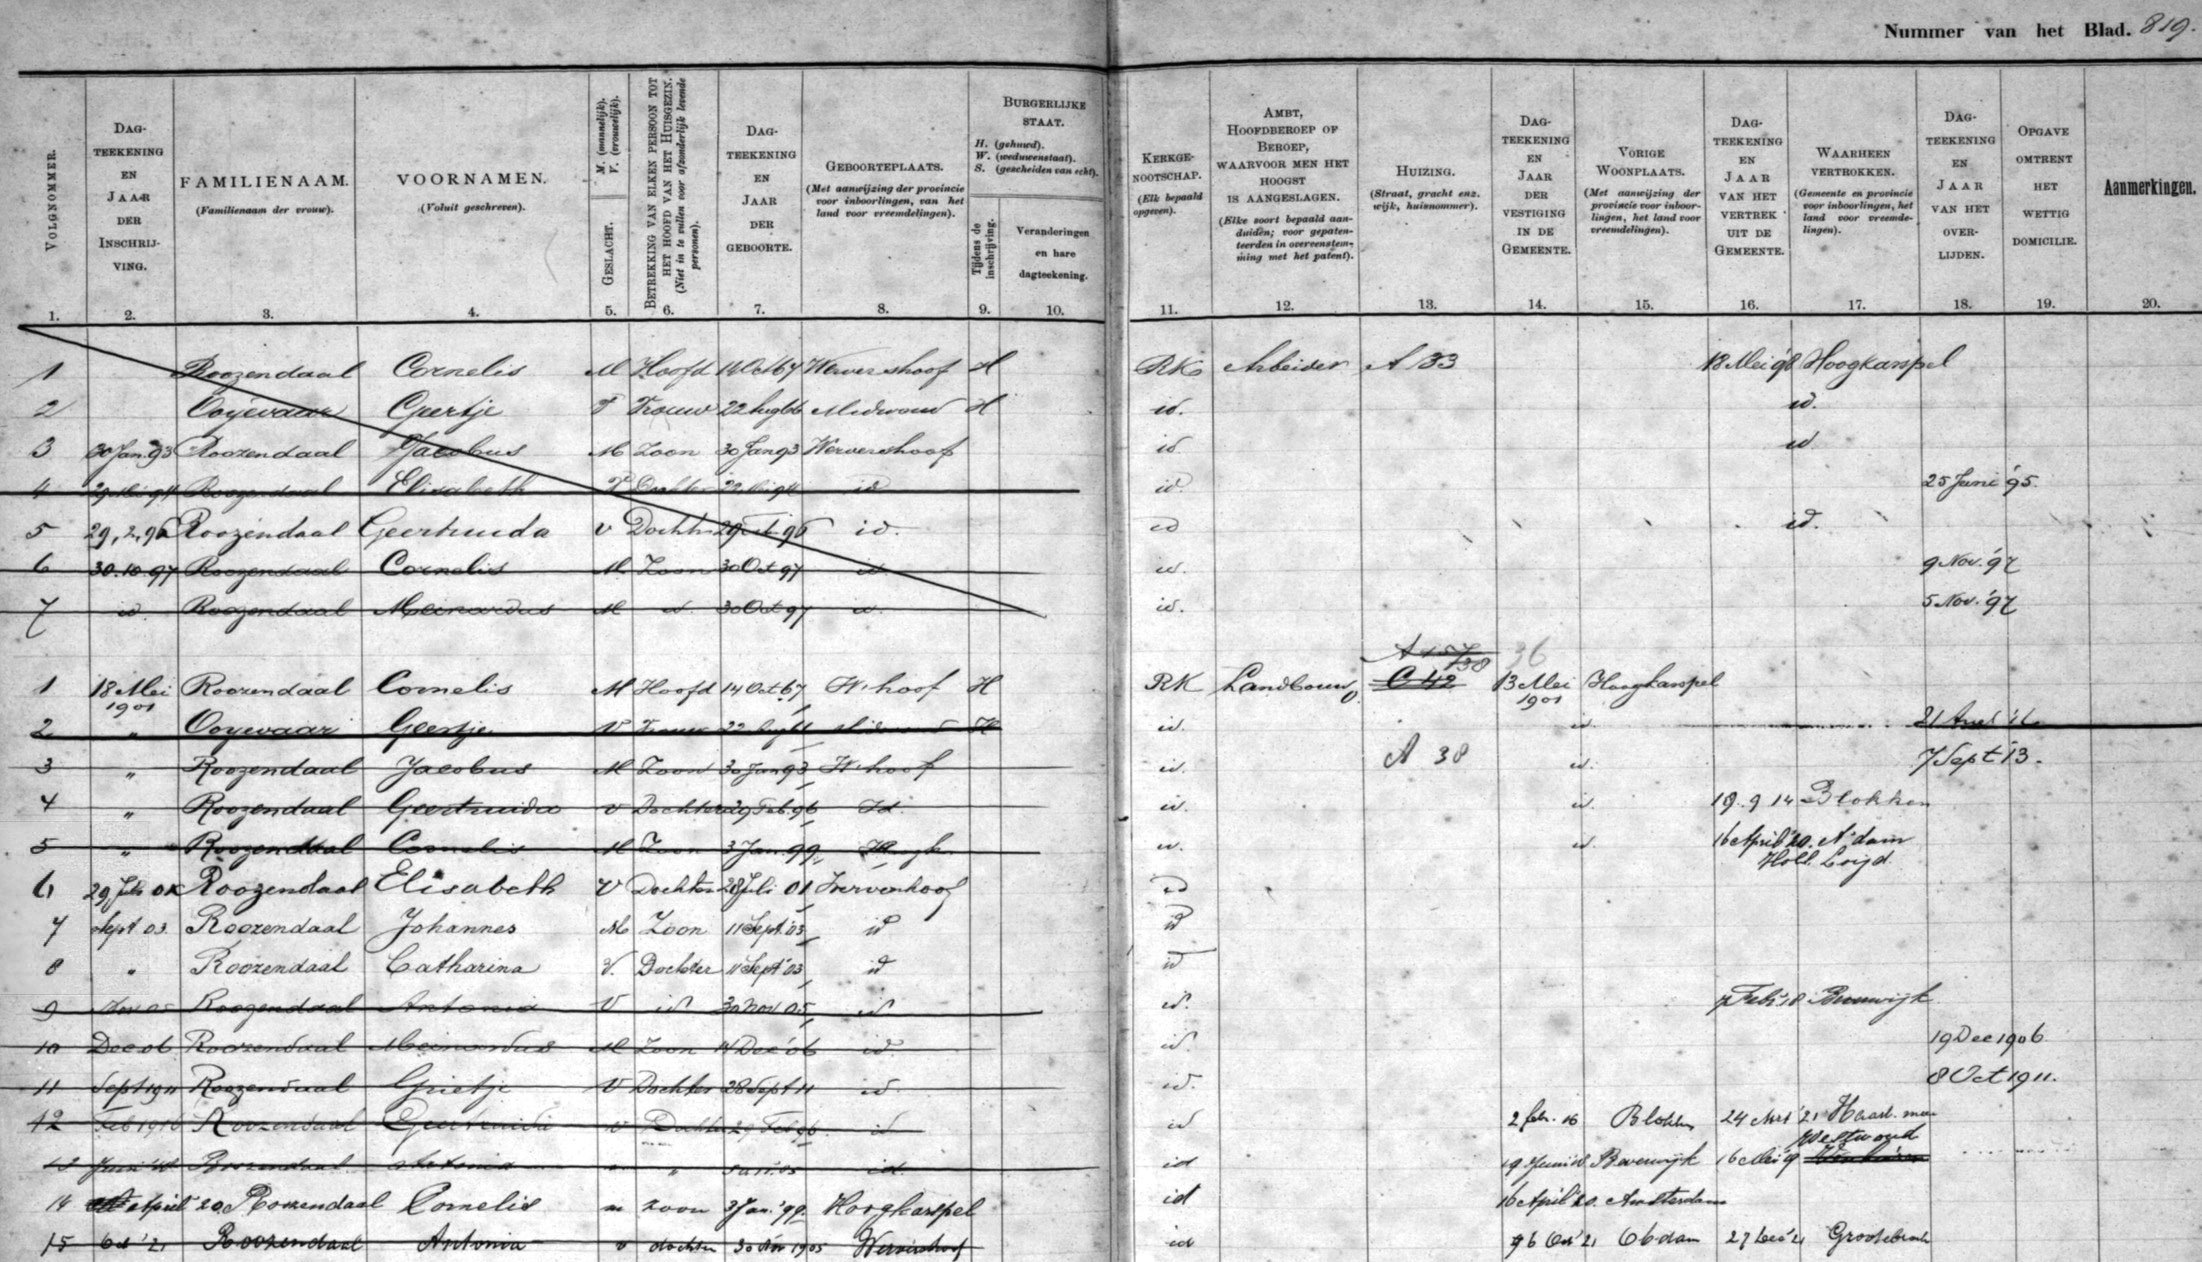 Nummer van het Blad. 819.
VOLGNOMMER.
DAG-
TEEKENING
EN
JAAR
DER
INSCHRIJ-
VING.
FAMILIENAAM.
(Familienaam der vrouw).
VOORNAMEN.
(Voluit geschreven).
M. (mannelijk).
V. (vrouwelijk).
GESLACHT.
BETREKKING VAN ELKEN PERSOON TOT
HET HOOFD VAN HET HUISGEZIN.
(Niet in te vullen voor afzonderlijk levende
personen).
DAG-
TEEKENING
EN
JAAR
DER
GEBOORTE.
GEBOORTEPLAATS.
(Met aanwijzing der provincie
voor inboorlingen, van het
land voor vreemdelingen).
BURGERLIJKE
STAAT.
H. (gehuwd).
W. (weduwenstaat).
S. (gescheiden van echt).
Tijdens de
inschrijving.
Veranderingen
en hare
dagteekening.
KERKGE-
NOOTSCHAP.
(Elk bepaald
opgeven).
AMBT,
HOOFDBEROEP OF
BEROEP,
WAARVOOR MEN HET
HOOGST
IS AANGESLAGEN.
(Elke soort bepaald aan-
duiden; voor gepaten-
teerden in overeenstem-
ming met het patent).
HUIZING.
(Straat, gracht enz.
wijk, huisnommer).
DAG-
TEEKENING
EN
JAAR
DER
VESTIGING
IN DE
GEMEENTE.
VORIGE
WOONPLAATS.
(Met aanwijzing der
provincie voor inboor-
lingen, het land voor
vreemdelingen).
DAG-
TEEKENING
EN
JAAR
VAN HET
VERTREK
UIT DE
GEMEENTE.
WAARHEEN
VERTROKKEN.
(Gemeente en provincie
voor inboorlingen, het
land voor vreemde-
lingen).
DAG-
TEEKENING
EN
JAAR
VAN HET
OVER-
LIJDEN.
OPGAVE
OMTRENT
HET
WETTIG
DOMICILIE.
Aanmerkingen.
1. 2. 3. 4. 5. 6. 7. 8. 9. 10. 11. 12. 13. 14. 15. 16. 17. 18. 19. 20.
1 Roozendaal Cornelis M Hoofd 14 Oct 67 Wervershoof H RK Arbeider A 33 13 Mei 98 Hoogkarspel
2 Ooyevaar Geertje V Vrouw 22 Aug 66 Midwoud H id. id.
3 30 Jan. 93 Roozendaal Jacobus M Zoon 30 Jan 93 Wervershoof id id
4 Roozendaal Elisabeth V Dochter id id. 25 Juni '95.
5 29,2,96 Roozendaal Geertruida V Dochter 29 Feb. 96 id. id id.
6 30.10.97 Roozendaal Cornelis M. Zoon 30 Oct 97 id id. 9 Nov. '97
7 id. Roozendaal Meinardus M id. 30 Oct 97 id. id. 5 Nov. '97
A 157
138 36
1 18 Mei Roozendaal Cornelis M Hoofd 14 Oct 67 W.hoof H RK Landbouw C 42 13 Mei Hoogkarspel
1901 1901
2 " Ooyevaar Geertje V Vrouw H id. id.
3 " Roozendaal Jacobus M Zoon 30 Jan 93 W.hoof id. A 38 id. 7 Sept 13.
4 " Roozendaal Geertruida V Dochter 29 Feb. 96 Id. id. id. 19.9 14 Blokker
5 " Roozendaal Cornelis M Zoon 3 Jan. 99 id. id. 16 April '20. A'dam
Holl. Loyd
6 29 Juli 01 Roozendaal Elisabeth V Dochter 28 Juli 01 Wervershoof id
7 Sept 03. Roozendaal Johannes M Zoon 11 Sept. '03 id id
8 " Roozendaal Catharina V. Dochter 11 Sept '03 id id
9 Nov 05 Roozendaal Antonia V id 30 Nov 05 id id. 7 Feb. '18 Beverwijk
10 Dec 06 Roozendaal Meinardus M Zoon 14 Dec '06 id. id. 19 Dec 1906
11 Sept 1911 Roozendaal Grietje V Dochter 28 Sept 11 id id. 8 Oct 1911.
12 Feb 1916 Roozendaal Geertruida V Dochter 29 Feb 96 id id 2 febr. 16 Blokker 24 Mrt '21
Westwoud
13 Juni 18 Roozendaal Antonia " id id 19 Juni 18 Beverwijk 16 Mei 19
14 April '20. Roozendaal Cornelis m zoon 3 Jan. '99 Hoogkarspel id 16 April '20. Amsterdam
15 Oct '21 Roozendaal Antonia v dochter 30 Nov 1905 Wervershoof id Oct '21 Obdam 27 Dec '21 Grootebroek